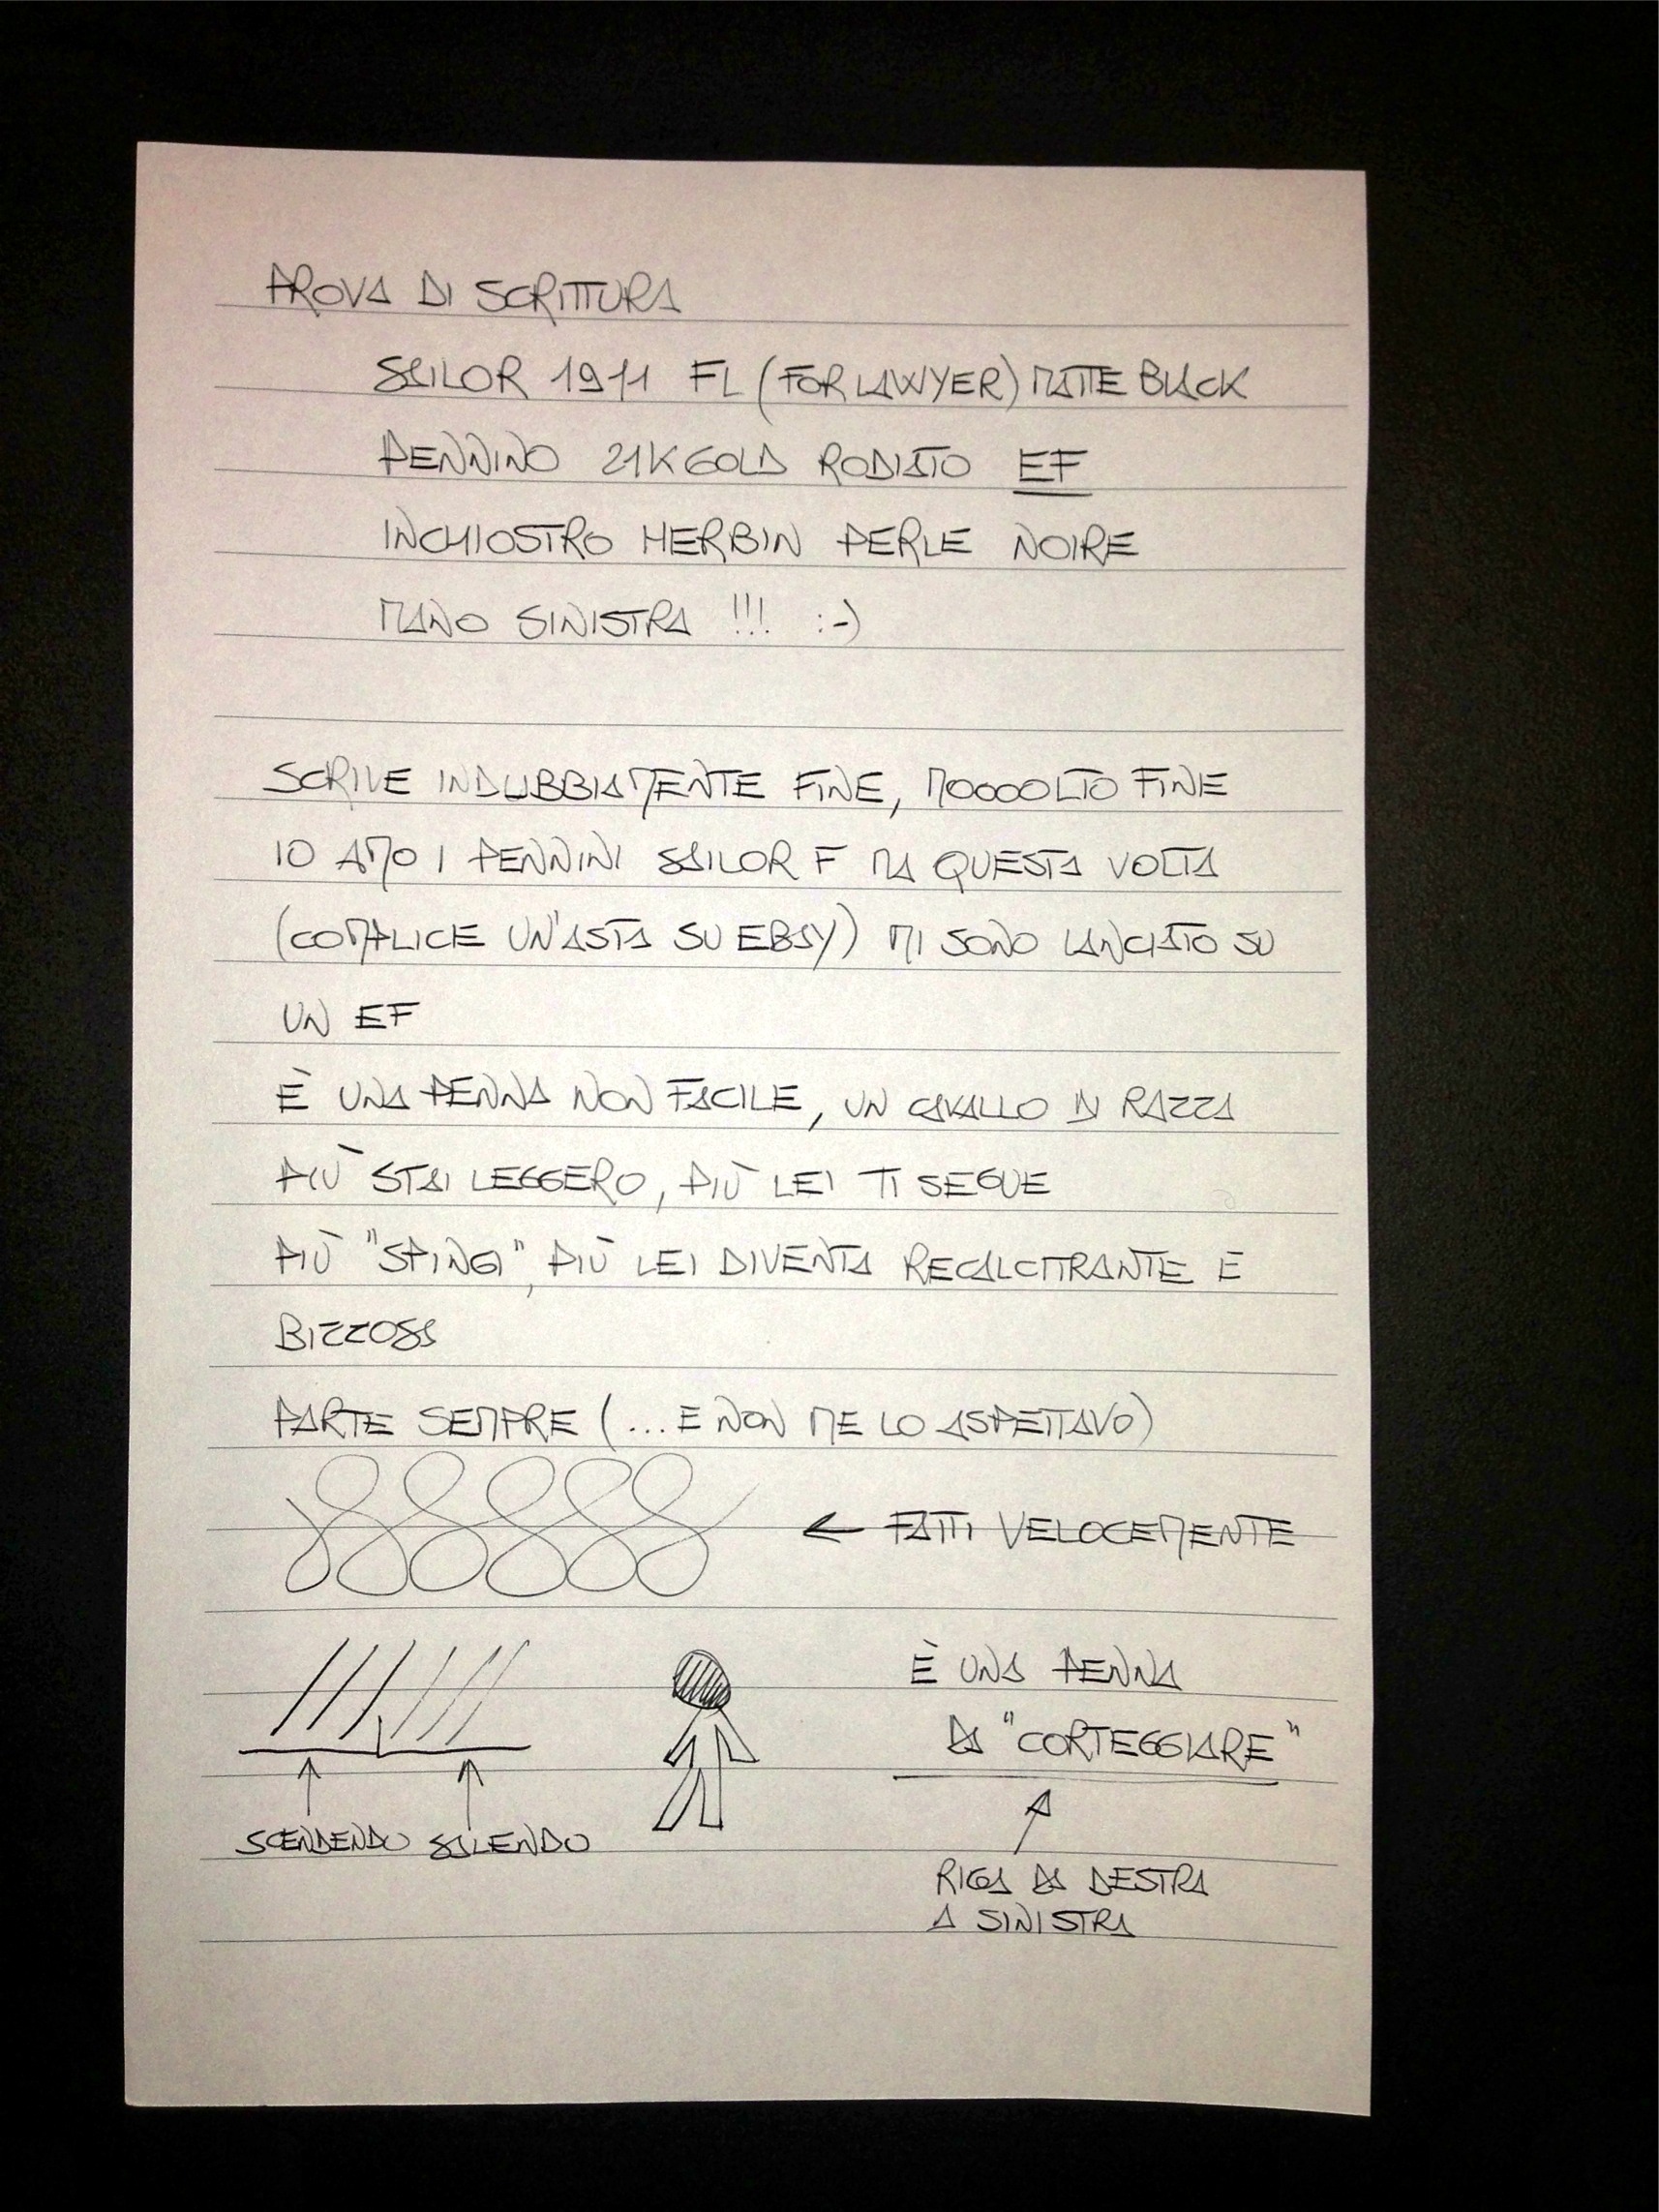 PROVA DI SCRITTURA
SAILOR 1911 FL (FOR LAWYER) MATTE BLACK
PENNINO 21K GOLD RODIATO EF
INCHIOSTRO HERBIN PERLE NOIRE
MANO SINISTRA !!! :-)
SCRIVE INDUBBIAMENTE FINE, MOOOOLTO FINE
IO AMO I PENNINI SAILOR F MA QUESTA VOLTA
(COMPLICE UN'ASTA SU EBAY) MI SONO LANCIATO SU
UN EF
È UNA PENNA NON FACILE, UN CAVALLO DI RAZZA
PIÙ STAI LEGGERO, PIÙ LEI TI SEGUE
PIÙ "SPINGI", PIÙ LEI DIVENTA RECALCITRANTE E
BIZZOSA
PARTE SEMPRE (... E NON ME LO ASPETTAVO)
← FATTI VELOCEMENTE
È UNA PENNA
DA "CORTEGGIARE"
SCENDENDO SALENDO
RIGA DA DESTRA
A SINISTRA